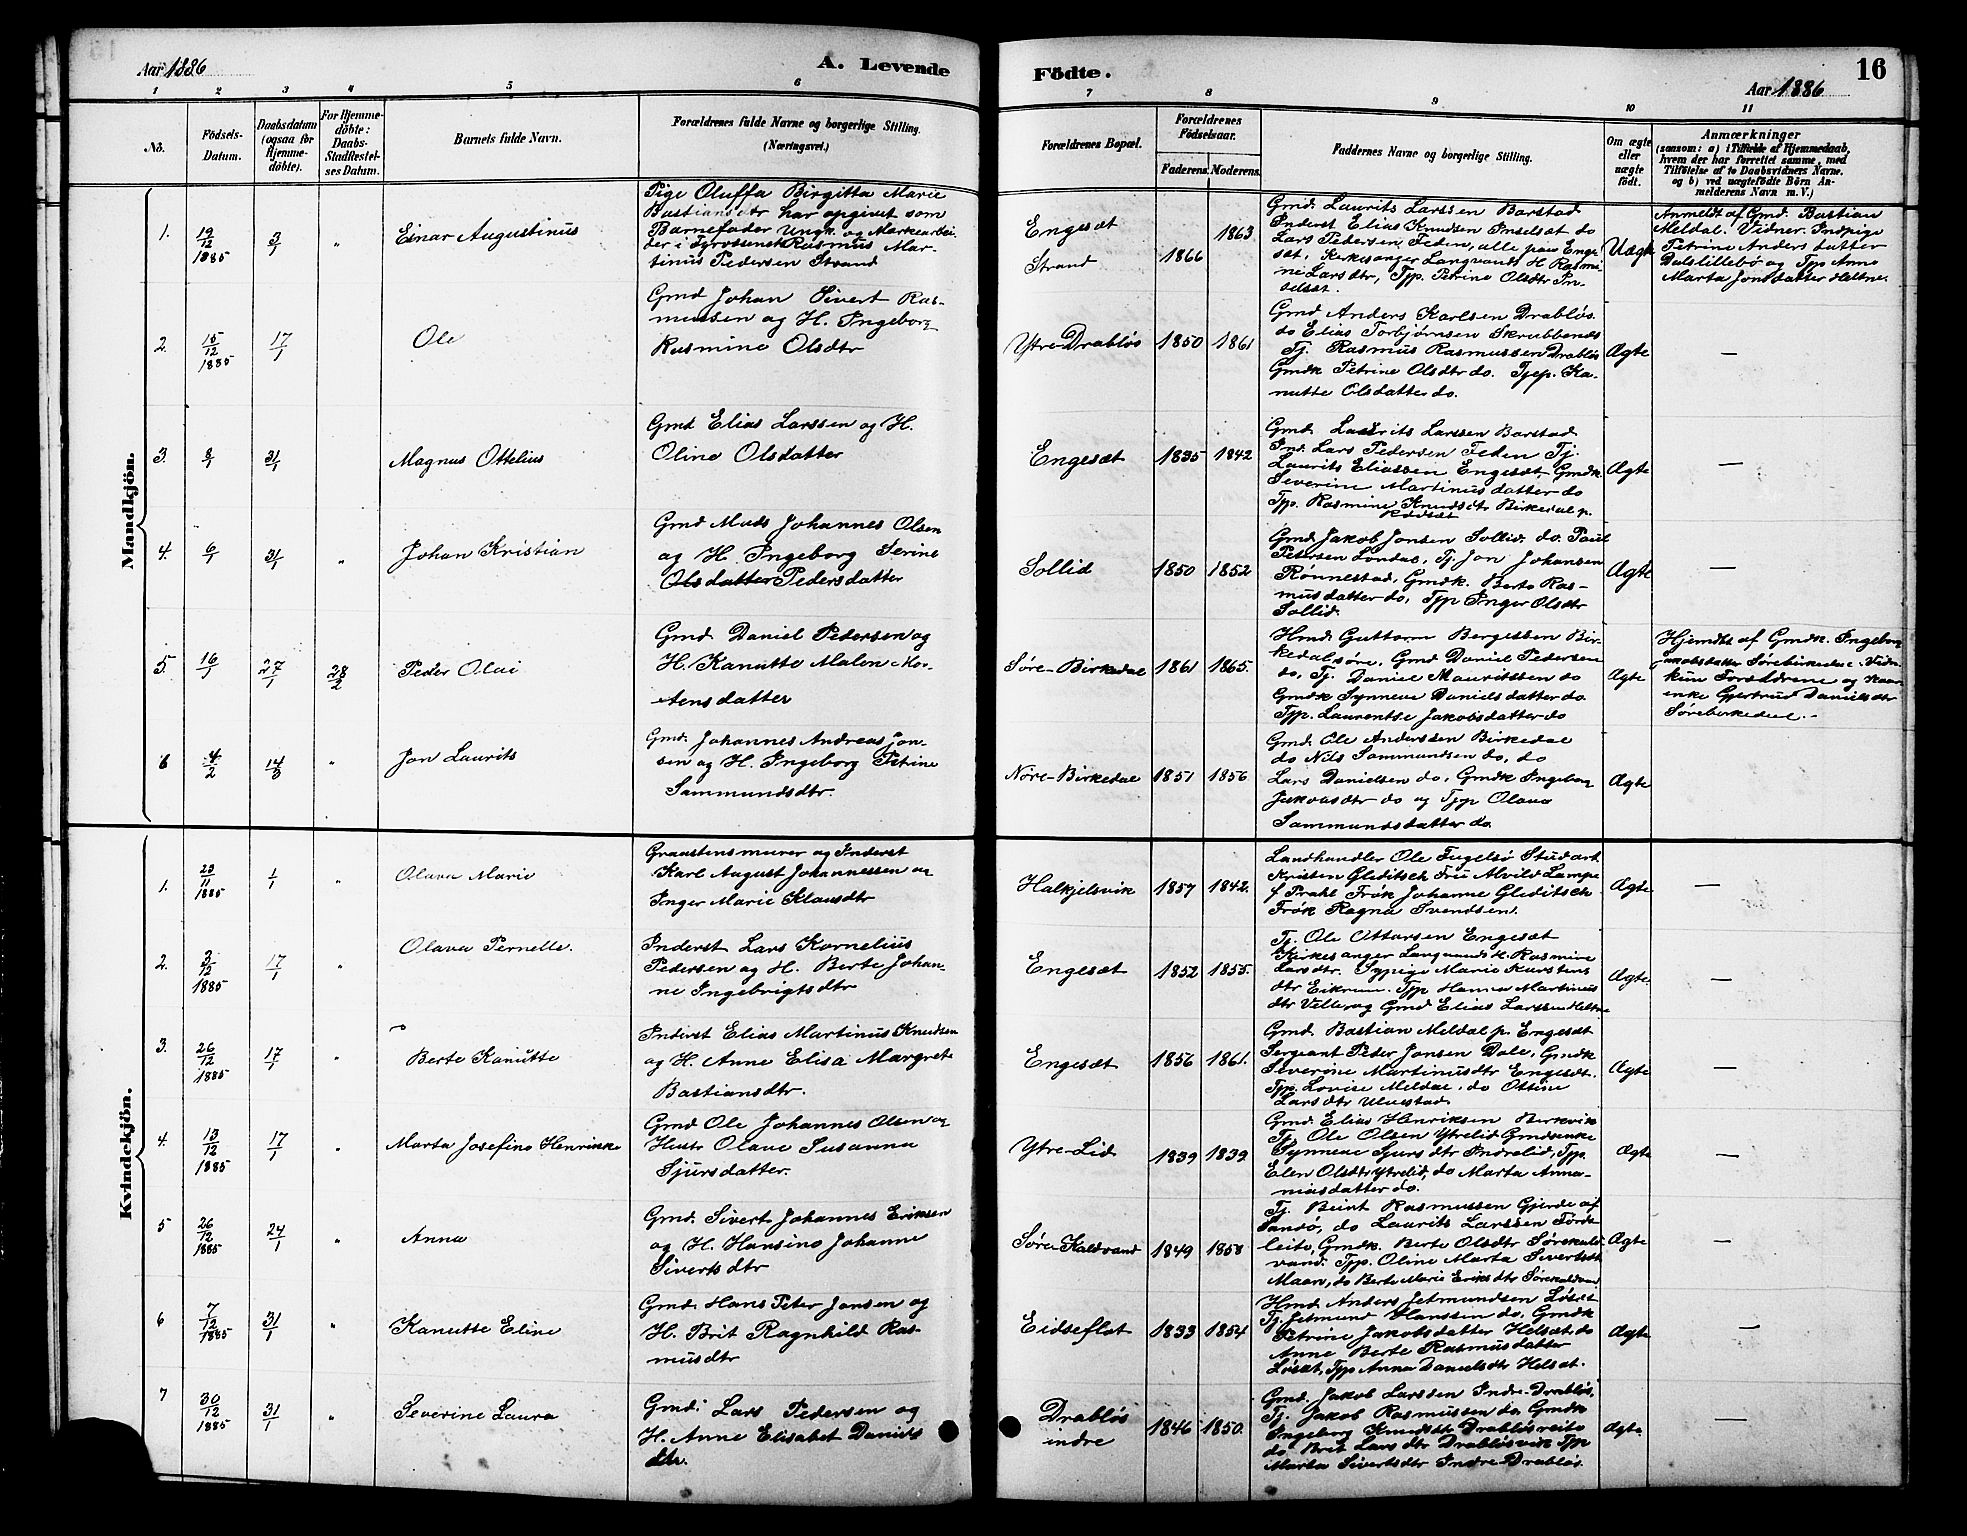 Aar 1886
A. Levende
Födte.
16
Aar 1886
1 2 3 4 5 6 7 8 9 10 11
No.
Födsels-Datum.
Daabsdatum (ogsaa for Hjemme-döbte).
For Hjemme-döbte: Daabs-Stadfæstel-ses Datum.
Barnets fulde Navn.
Forældrenes fulde Navne og borgerlige Stilling.
(Næringsvei.)
Forældrenes Bopæl.
Forældrenes Födselsaar.
Faderens. Moderens.
Faddernes Navne og borgerlige Stilling.
Om ægte eller uægte födt.
Anmærkninger
(saasom: a) i Tilfælde af Hjemmedaab, hvem der har forrettet samme, med Tilföielse af to Daabsvidners Navne. og b) ved uægtefödte Börn Anmelderens Navn m. V.)
Mandkjön.
1. 19/12 1885 3/1 " Einar Augustinus
Pige Oluffa Birgitta Marie
Bastiansdtr har opgivet som
Barnefader Ungk. og Markearbei-
der i Tyrolsensk Rasmus Mar-
tinus Pedersen Strand
Engesæt
Strand
1866 1863
Gmd. Laurits Larssen Barstad
Inderst Elias Knudsen Inselsæt do
Lars Pedersen Feden, alle paa Enge-
sæt, Kirkesanger Langvands H. Rasmi-
ne Larsdtr, Tjp. Petrine Olsdtr In-
selsæt.
Uægte
Anmeldt af Gmd. Bastian
Meldal. Vidner: Indpige
Petrine Andersdatter
Dalslillebö og Tjp Anne
Marta Jonsdatter Heltne.
2. 15/12 1885 17/1 Ole
Gmd Johan Sivert Ras-
mussen og H. Ingeborg
Rasmine Olsdtr
Ytre-Drabløs 1850 1861
Gmd Anders Karlsen Drabløs.
do Elias Torbjørnsen Skrubbenæs
Tj. Rasmus Rasmussen Drabløs
Gmdk Petrine Olsdtr do. Tjep. Ka-
nutte Olsdatter do.
Ægte —
3. 8/1 31/1 Magnus Ottelius
Gmd Elias Larssen og H.
Oline Olsdatter
Engesæt 1835 1842
Gmd. Laurits Larssen Barstad
Ind. Lars Pedersen Feden Tj.
Laurits Eliassen Engesæt, Gmdk.
Severine Martinusdatter do
Tjp. Rasmine Knudsdtr Birkedal p.
Ægte —
4. 6/1 31/1 " Johan Kristian
Gmd Mads Johannes Olsen
og H. Ingeborg Serine
Olsdatter Pedersdatter
Sollid 1850 1852
Gmd Jakob Jonsen Sollid. do. Paul
Petersen Løndal, Tj. Jon Johansen
Rönnestad, Gmdk. Berte Ras-
musdatter do, Tjp Inger Olsdtr
Sollid.
Ægte —
5. 16/1 27/1 28/2 Peder Olai
Gmd. Daniel Pedersen og
H. Kanutte Malene Mor-
tensdatter
Søre-Birkedal 1861 1865.
Hmd. Guttorm Bergessen Bir-
kedalsøre, Gmd Daniel Pedersen
do, Tj. Daniel Mauritssen do
Gmdk Synneve Danielsdatter do
Tjp. Laurentse Jakobsdatter do
Ægte
Hjemdbt af Gmdk. Ingeborg
Jakobsdatter Sørebirkedal. Vidn-
Forældrene og
enke Gjertrud Danielsdtr
Sørebirkedal.—
6 4/2 14/3 " Jon Laurits
Gmd. Johannes Andreas Jon-
sen og H. Ingeborg Petrine
Sammundsdtr.
Nøre-Birkedal 1851 1856
Gmd. Ole Anderssen Birkedal
do Nils Sammundsen do, do
Lars Danielsen do, Gmdk Ingeborg
Jakobsdtr do og Tjp Olava
Sammundsdatter do.
Ægte
Kvindekjön.
1. 23/11 1885 1/1 " Olava Marie
Graastensmurer og Inderst
Karl August Johannessen og
Inger Marie Klausdtr
Halkjelsvik 1857 1842.
Landhandler Ole Fugelsø Stud art
Kristen Gleditsch Frue Alvild Lampe
f Prahl Frøk Johanne Gleditsch
Frøk Ragna Svendsen.
Ægte —
2. 3/12 1885 17/1 " Olava Pernelle.
Inderst Lars Kornelius
Pedersen og H. Berte Johan-
ne Ingebrigtsdtr
Engesæt 1852 1855.
Tj. Ole Ottarsen Engesæt
Kirkesanger Langvands H. Rasmine
Larsdtr. Sypige Marie Karstens
dtr Eikrem. Tjp Hanna Martinus
dtr Velle og Gmd Elias Larssen Heltne
Ægte. —
3. 26/12 1885 17/1 " Berte Kanutte
Inderst Elias Martinus Knudsen
og H. Anne Elisa Margrete
Bastiansdtr.
Engesæt 1856 1861.
Gmd. Bastian Meldal p. Engesæt
Sergeant Peder Jonsen Dale, Gmdk
Severine Martinusdtr Engesæt.
Tjp. Lovise Meldal, do Ottine
Larsdtr Ulvestad.
Ægte —
4. 13/12 1885 17/1 " Marta Josefine Henrikke
Gmd Ole Johannes Olsen og
Hustr Olave Susanna
Sjursdatter.
Ytre-Lid 1839 1839
Gmd. Elias Henriksen Birkvik
Tj. Ole Olsen Ytrelid Gmdsenke
Synneve Sjursdtr Indrelid, Tjp.
Elen Olsdtr Ytrelid, do Marta Anna-
niasdatter do.
Ægte —
5 26/12 1885 24/1 " Anna
Gmd. Sivert Johannes Eriksen
og H. Hansine Johanne
Sivertsdtr
Søre-Kaldvand 1849 1858
Tj. Beint Rasmussen Gjerde af
Sandø, do Laurits Larssen Förde
leite, Gmdk. Berte Olsdtr Sørekald-
vand. Tjp. Oline Marta Sivertsdtr
Maan, do Berte Marie Eriksdtr Sørekaldvand
Ægte —
6 7/12 1885 31/1 " Kanutte Eline
Gmd. Hans Peter Jonsen og
H. Brit Ragnhild Ras-
musdtr
Eidseflot 1833 1854
Hmd. Anders Jetmundsen Løset
Tj. Jetmund Hanssen do, Gmdk
Petrine Jakobsdatter Helset, do
Anne Berte Rasmusdatter
Løset, Tjp Anna Danielsdtr Helset.
Ægte —
7 30/12 1885 31/1 " Severine Laura
Gmd. Lars Pedersen og
H. Anne Elisabet Daniels
dtr.
Drabløs
indre
1846 1850.
Gmd. Jakob Larssen Indre-Drabløs,
Tj. Jakob Rasmussen do, Gmdk
Ingeborg Knudsdtr Drabløsreite
do Brit Larsdtr Drabløsvik Tjp
Marta Sivertsdtr Indre-Drabløs.
Ægte. —